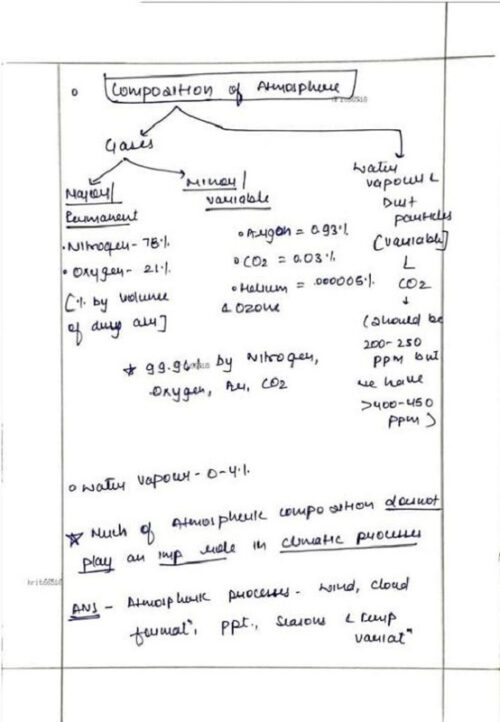 Composition of Atmosphere
hrit60510
Gases
Major/
Permanent
• Nitrogen - 78%
• Oxygen - 21%
[% by volume
of dry air]
Minor/
variable
• Argon = 0.93%
• CO2 = 0.03%
• Helium = .000005%
& Ozone
Water
vapour &
Dust
particles
[variable]
&
CO2
(should be
200-250
ppm but
we have
>400-450
ppm)
☆ 99.96% by Nitrogen,
Oxygen, Ar, CO2
o water vapour - 0-4%
☆ Much of Atmospheric composition doesnot
play an imp role in climatic processes
ANS - Atmospheric processes - wind, cloud
format", ppt., seasons & temp
variat"